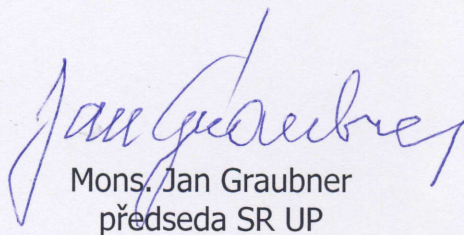 Jan Graubner
Mons. Jan Graubner
předseda SR UP